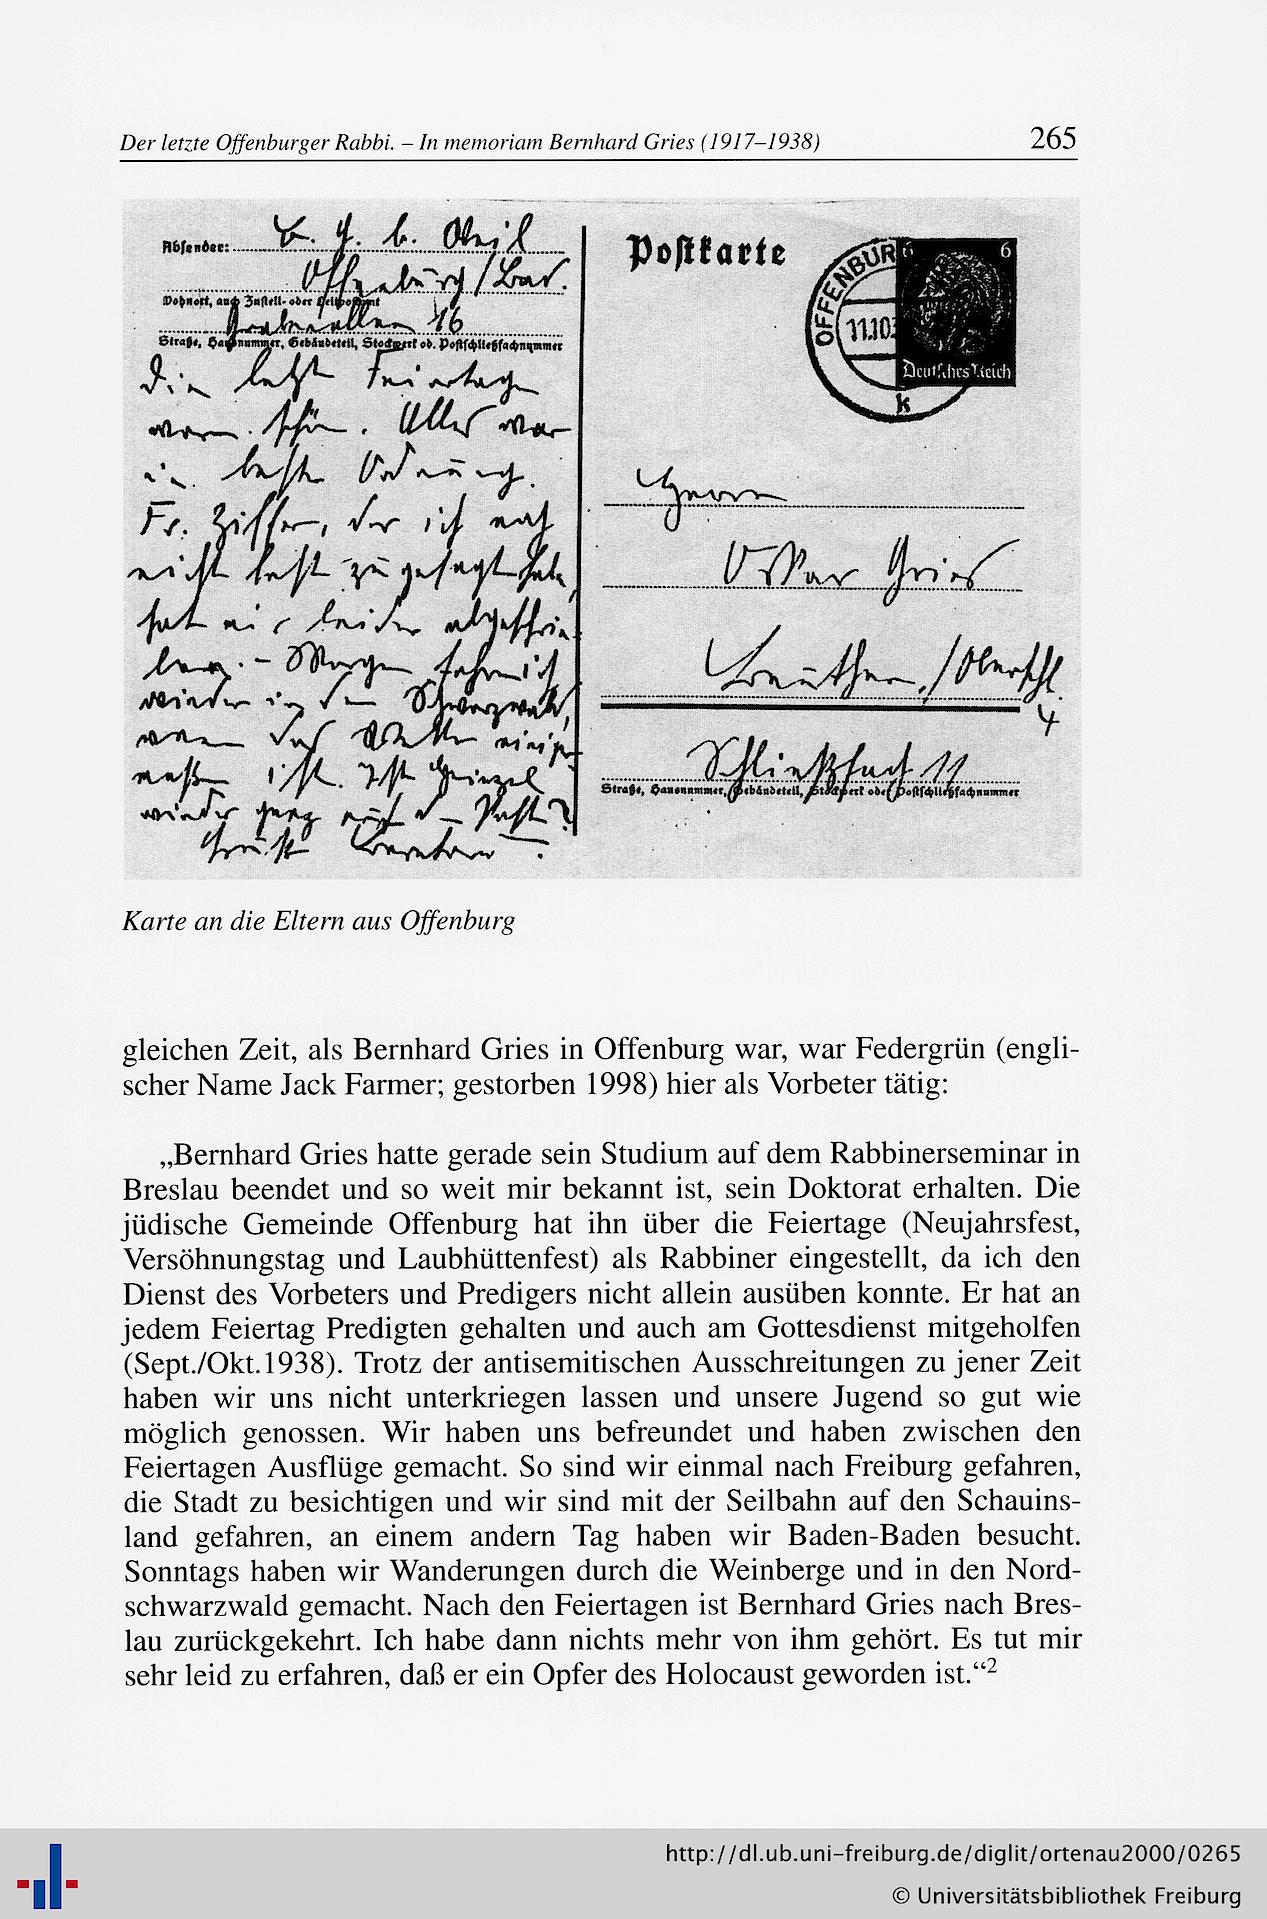 Der letzte Offenburger Rabbi. – In memoriam Bernhard Gries (1917–1938)
265
Absender: B. G. b. Weil
Offenburg/Bad.
Wohnort, auch Zustell- oder Leitpostamt
Grabenallee 16
Straße, Hausnummer, Gebäudeteil, Stockwerk od. Postschließfachnummer
Die letzten Feiertage
waren schön. Alles war
in bester Ordnung.
Fr. Ziffer, der ich noch
nicht fest zugesagt habe,
hat mir leider abgeschrie-
ben. – Morgen fahre ich
wieder in den Schwarzwald,
wenn das Wetter einiger-
maßen ist. Ist
wieder ganz auf d
Postkarte
OFFENBURG
11.10.3
k
6 6
Deutsches Reich
Herrn
Oskar Gries
Beuthen,/Oberschl.
4
Schließfach 11
Straße, Hausnummer, Gebäudeteil, Stockwerk oder Postschließfachnummer
Karte an die Eltern aus Offenburg
gleichen Zeit, als Bernhard Gries in Offenburg war, war Federgrün (engli-
scher Name Jack Farmer; gestorben 1998) hier als Vorbeter tätig:
„Bernhard Gries hatte gerade sein Studium auf dem Rabbinerseminar in
Breslau beendet und so weit mir bekannt ist, sein Doktorat erhalten. Die
jüdische Gemeinde Offenburg hat ihn über die Feiertage (Neujahrsfest,
Versöhnungstag und Laubhüttenfest) als Rabbiner eingestellt, da ich den
Dienst des Vorbeters und Predigers nicht allein ausüben konnte. Er hat an
jedem Feiertag Predigten gehalten und auch am Gottesdienst mitgeholfen
(Sept./Okt.1938). Trotz der antisemitischen Ausschreitungen zu jener Zeit
haben wir uns nicht unterkriegen lassen und unsere Jugend so gut wie
möglich genossen. Wir haben uns befreundet und haben zwischen den
Feiertagen Ausflüge gemacht. So sind wir einmal nach Freiburg gefahren,
die Stadt zu besichtigen und wir sind mit der Seilbahn auf den Schauins-
land gefahren, an einem andern Tag haben wir Baden-Baden besucht.
Sonntags haben wir Wanderungen durch die Weinberge und in den Nord-
schwarzwald gemacht. Nach den Feiertagen ist Bernhard Gries nach Bres-
lau zurückgekehrt. Ich habe dann nichts mehr von ihm gehört. Es tut mir
sehr leid zu erfahren, daß er ein Opfer des Holocaust geworden ist.“2
http://dl.ub.uni-freiburg.de/diglit/ortenau2000/0265
© Universitätsbibliothek Freiburg